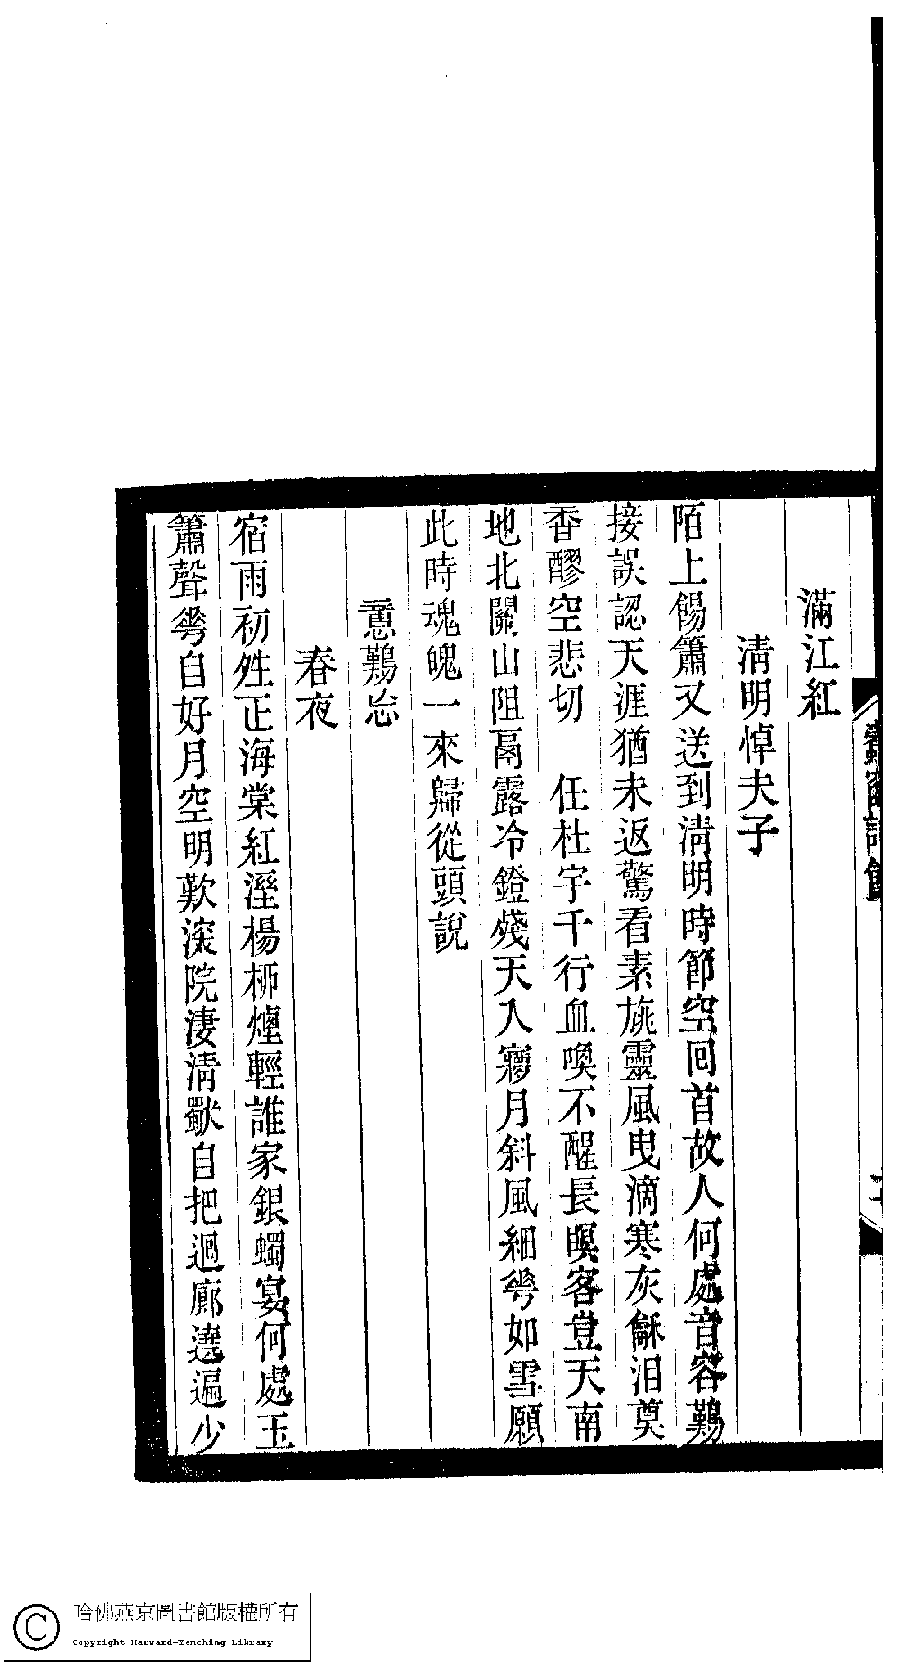 滿江紅
清明悼夫子
陌上餳簫又送到清明時節空回首故人何處音容難
接誤認天涯猶未返驚看素旐靈風曳滴寒灰龢泪奠
香醪空悲切　任杜宇千行血喚不醒長瞑客豈天南
地北關山阻鬲露冷鐙殘天入㝱月斜風細華如雪願
此時魂魄一來歸從頭說
意難忘
春夜
宿雨初夝正海棠紅溼楊桺煙輕誰家銀蠋宴何處玉
簫聲華自好月空明歎深院淒清獨自把迴廊遶遍少
哈佛燕京圖書館版權所有
Copyright Harvard-Yenching Library